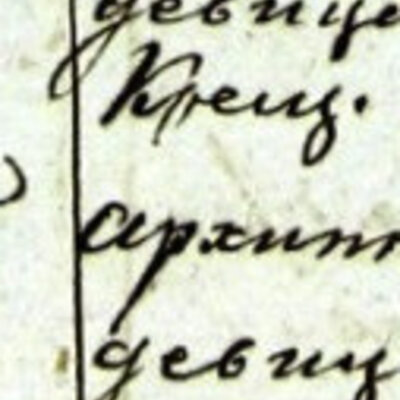 девица
Крещ.
Архип
девиц